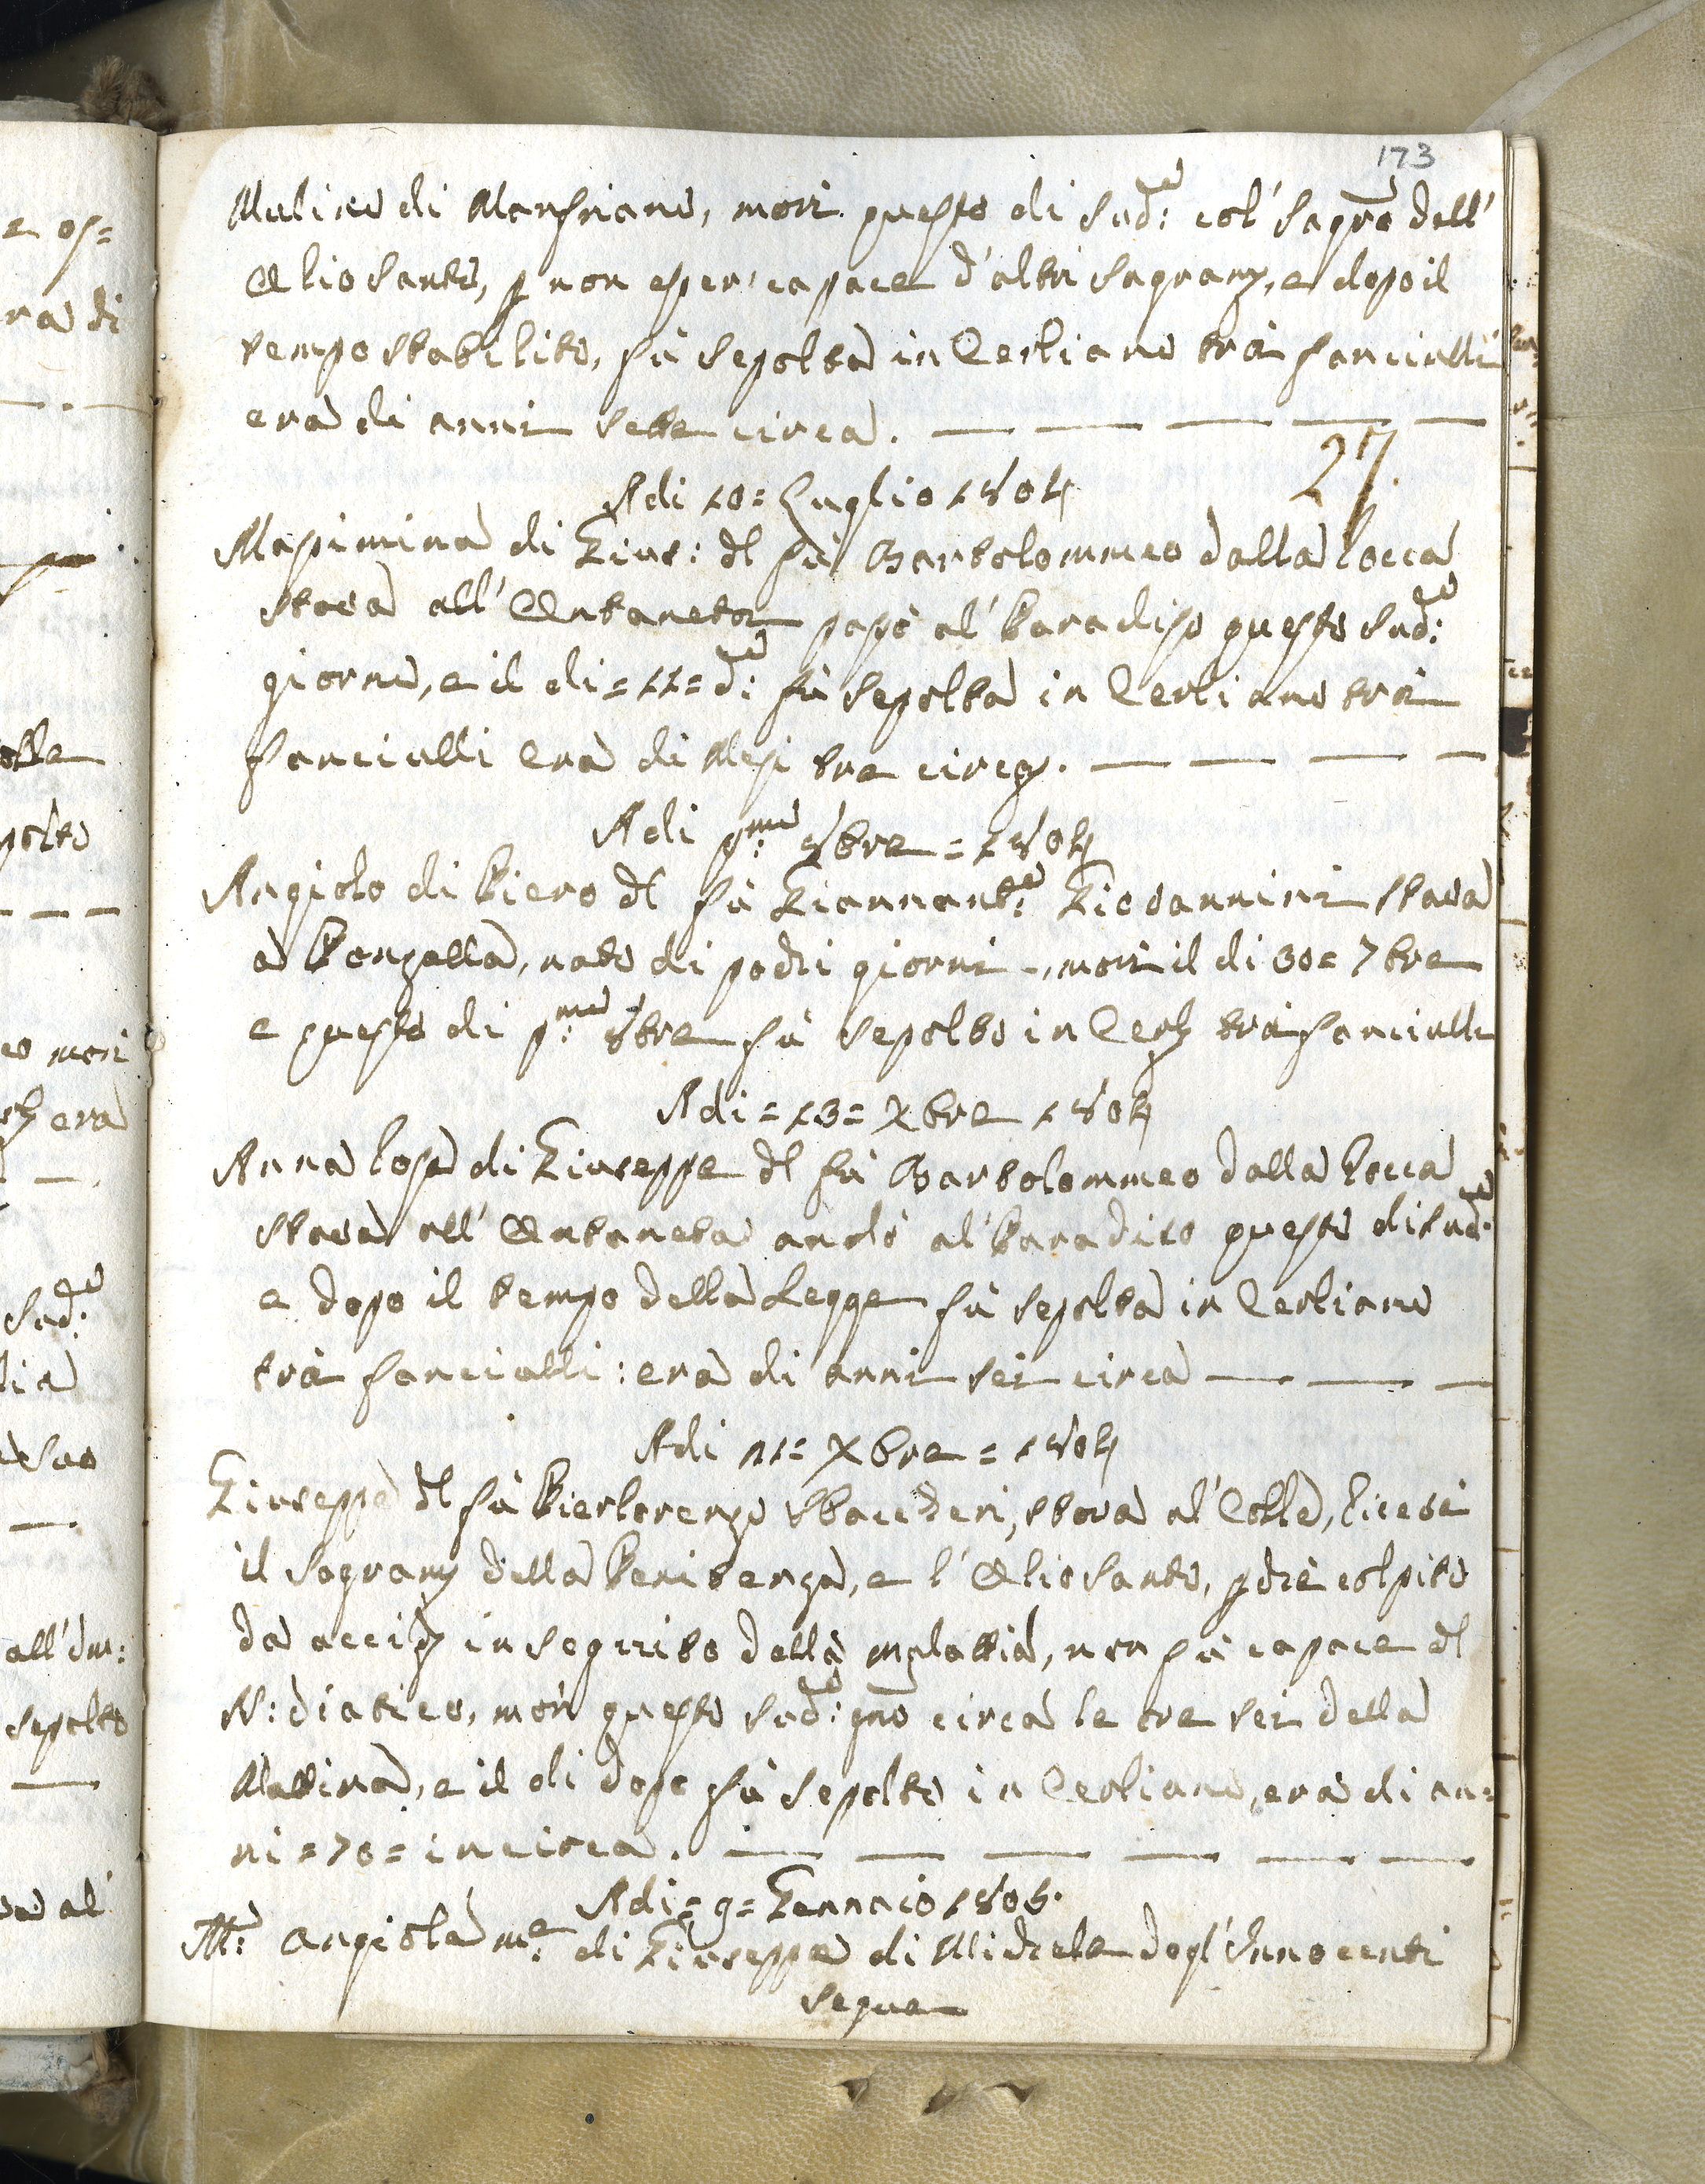 173
Mulino di Monfriano, morì questo dì Sud:to col' Sagr:o dell'
Olio Santo, p non esser' capace d'altri Sagram:, e dopo il
tempo stabilito, fù Sepolta in Cerliano trà fanciulli
era di anni Sette circa.
27
Adi 10= Luglio 1804
Massimina di Gius: dl fù Bartolommeo dalla Rocca
stava all' Ontaneta passò al' Paradiso questo Sud:to
giorno, e il dì =11= d:to fù Sepolta in Cerliano trà
fanciulli era di Mesi tre circa.
Adi p:mo 8bre = 1804
Angiolo di Piero dl fù Giannant:o Giovannini stava
a Penzalla, nato di pochi giorni, morì il dì 30= 7bre
e questo dì p:mo 8bre fù Sepolto in Cerl: trà fanciulli
Adi =13= Xbre 1804
Anna Rosa di Giuseppe dl fù Bartolommeo dalla Rocca
stava all' Ontaneta andò al' Paradiso questo dì Sud:to
e dopo il tempo della Legge fù Sepolta in Cerliano
trà fanciulli: era di anni sei circa
Adi 21= Xbre = 1804
Giuseppe dl fù Pierlorenzo Sbaccheri, stava al' Colle, Ricevè
il Sagram: della Penitenza, e l' Olio Santo, pchè colpito
da accid: in seguito della malattia, non fù capace dl
V:diatico, morì questo Sud:to gno circa le ore sei della
Mattina, e il dì dopo fù Sepolto in Cerliano, era di an=
ni =70= incirca.
Adi =9= Gennaio 1805.
M:a Angiola m:e di Giuseppe di Michele degl' Innocenti
Segue